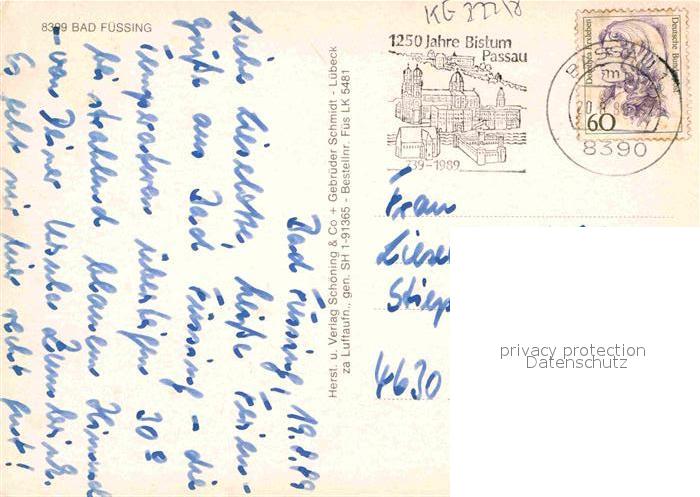 8399 BAD FÜSSING
KG 322/8
1250 Jahre Bistum
Passau
739-1989
Deutsche Bundespost
60
8390
Bad Füssing, 19.8.89
Liebe Lieselotte, heiße Ferien-
grüße aus Bad Füssing - die
Temperaturen übersteigen 30°
bei strahlend blauem Himmel
- von Deiner Ursula
Es geht mir hier recht gut!
Herst. u. Verlag Schöning & Co + Gebrüder Schmidt - Lübeck
za Luftaufn., gen. SH 1-91365 - Bestellnr. Füs LK 5481
Frau
Liesel
Stiep
4630
privacy protection
Datenschutz